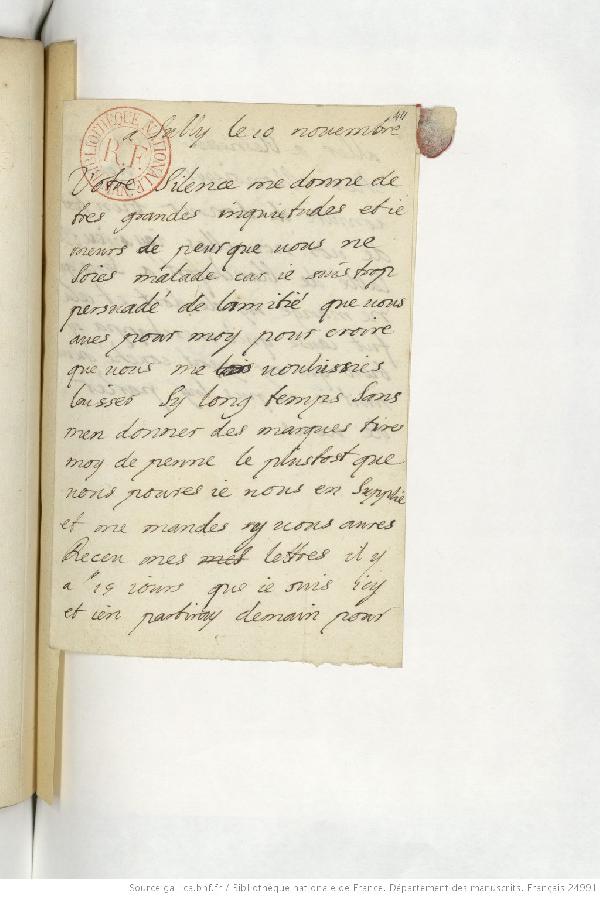 44
a Sully le 10 novembre
BIBLIOTHÈQUE NATIONALE
R.F.
Votre Silence me donne de
tres grandes inquietudes et ie
meurs de peur que vous ne
Soies malade car ie suis trop
persuadé de lamitié que vous
aues pour moy pour croire
que vous me voulussies
laisser Sy long temps Sans
men donner des marques tires
moy de penne le plustost que
vous poures ie vous en Supplie
et me mandes sy vous aures
Receu mes mes lettres il y
a 19 iours que ie suis icy
et ien partiray demain pour
Source gallica.bnf.fr / Bibliothèque nationale de France. Département des manuscrits. Français 24991